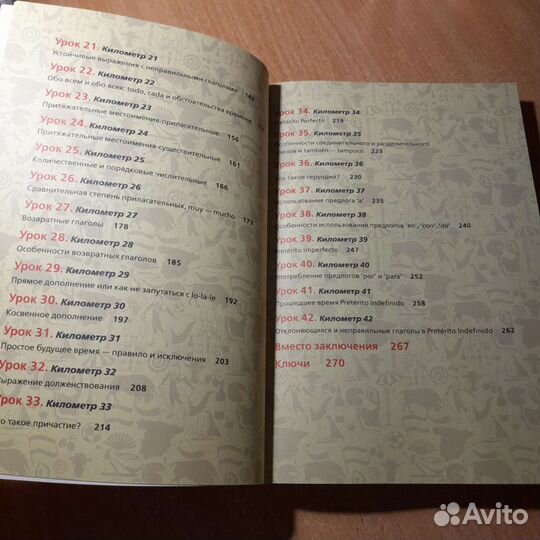 Урок 21. Километр 21
Устойчивые выражения с неправильными глаголами 142
Урок 22. Километр 22
Обо всем и обо всех: todo, cada и обстоятельства времени
Урок 23. Километр 23
Притяжательные местоимения-прилагательные 156
Урок 24. Километр 24
Притяжательные местоимения-существительные 161
Урок 25. Километр 25
Количественные и порядковые числительные 166
Урок 26. Километр 26
Сравнительная степень прилагательных, muy — mucho 173
Урок 27. Километр 27
Возвратные глаголы 178
Урок 28. Километр 28
Особенности возвратных глаголов 185
Урок 29. Километр 29
Прямое дополнение или как не запутаться с lo-la-le 192
Урок 30. Километр 30
Косвенное дополнение 197
Урок 31. Километр 31
Простое будущее время — правило и исключения 203
Урок 32. Километр 32
Выражение долженствования 208
Урок 33. Километр 33
то такое причастие? 214
Урок 34. Километр 34
Pretérito Perfecto 219
Урок 35. Километр 35
Особенности соединительного и разделительного
союзов и también — tampoco 223
Урок 36. Километр 36
Что такое герундий? 230
Урок 37. Километр 37
Использование предлога 'a' 235
Урок 38. Километр 38
Особенности использования предлогов 'en', 'con', 'de' 240
Урок 39. Километр 39
Pretérito Imperfecto 247
Урок 40. Километр 40
Употребление предлогов 'por' и 'para' 252
Урок 41. Километр 41
Прошедшее время Pretérito Indefinido 258
Урок 42. Километр 42
Отклоняющиеся и неправильные глаголы в Pretérito Indefinido 262
Вместо заключения 267
Ключи 270
Avito